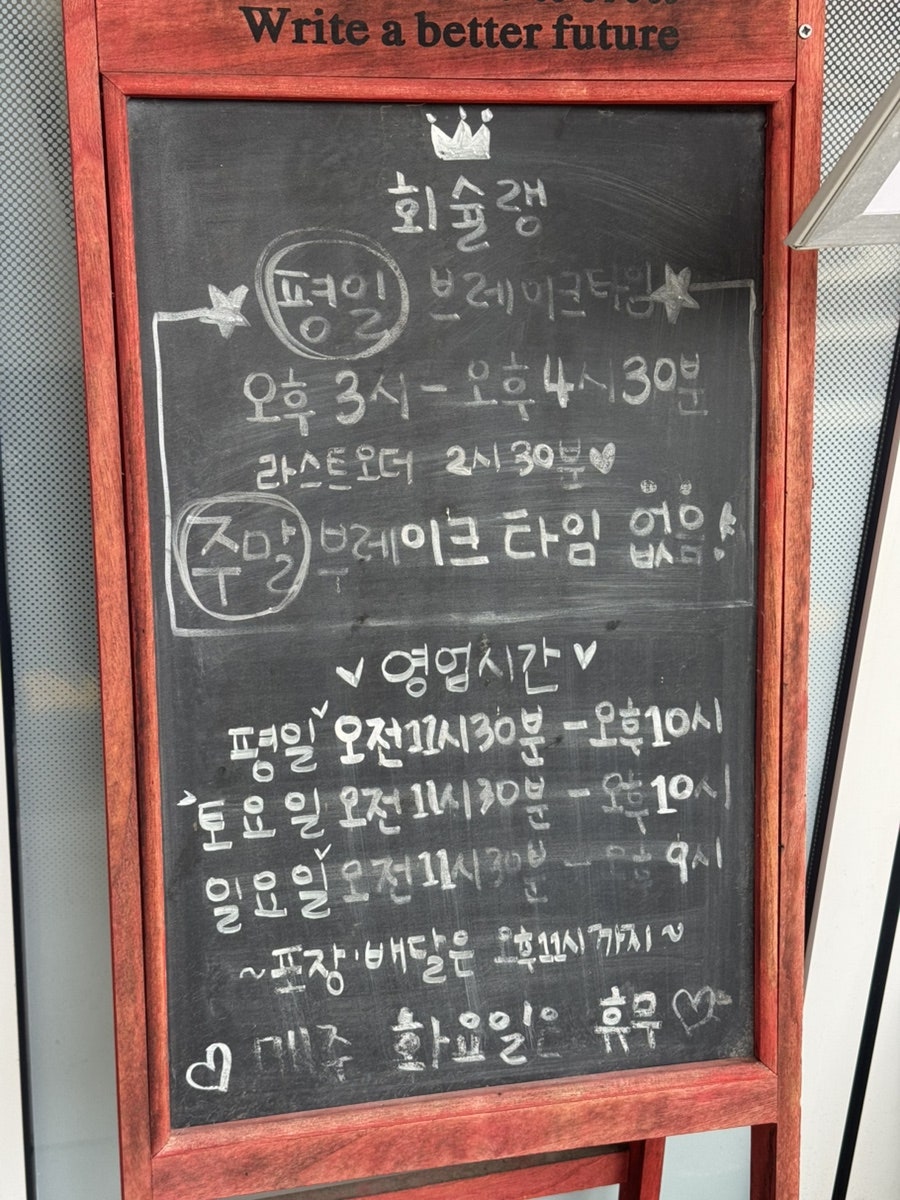 Write a better future
회슐랭
평일 브레이크타임
오후 3시 - 오후 4시 30분
라스트오더 2시 30분♥
주말 브레이크 타임 없음!
영업시간
평일 오전 11시 30분 - 오후 10시
토요일 오전 11시 30분 - 오후 10시
일요일 오전 11시 30분 - 오후 9시
~포장·배달은 오후 11시 까지~
매주 화요일은 휴무♡